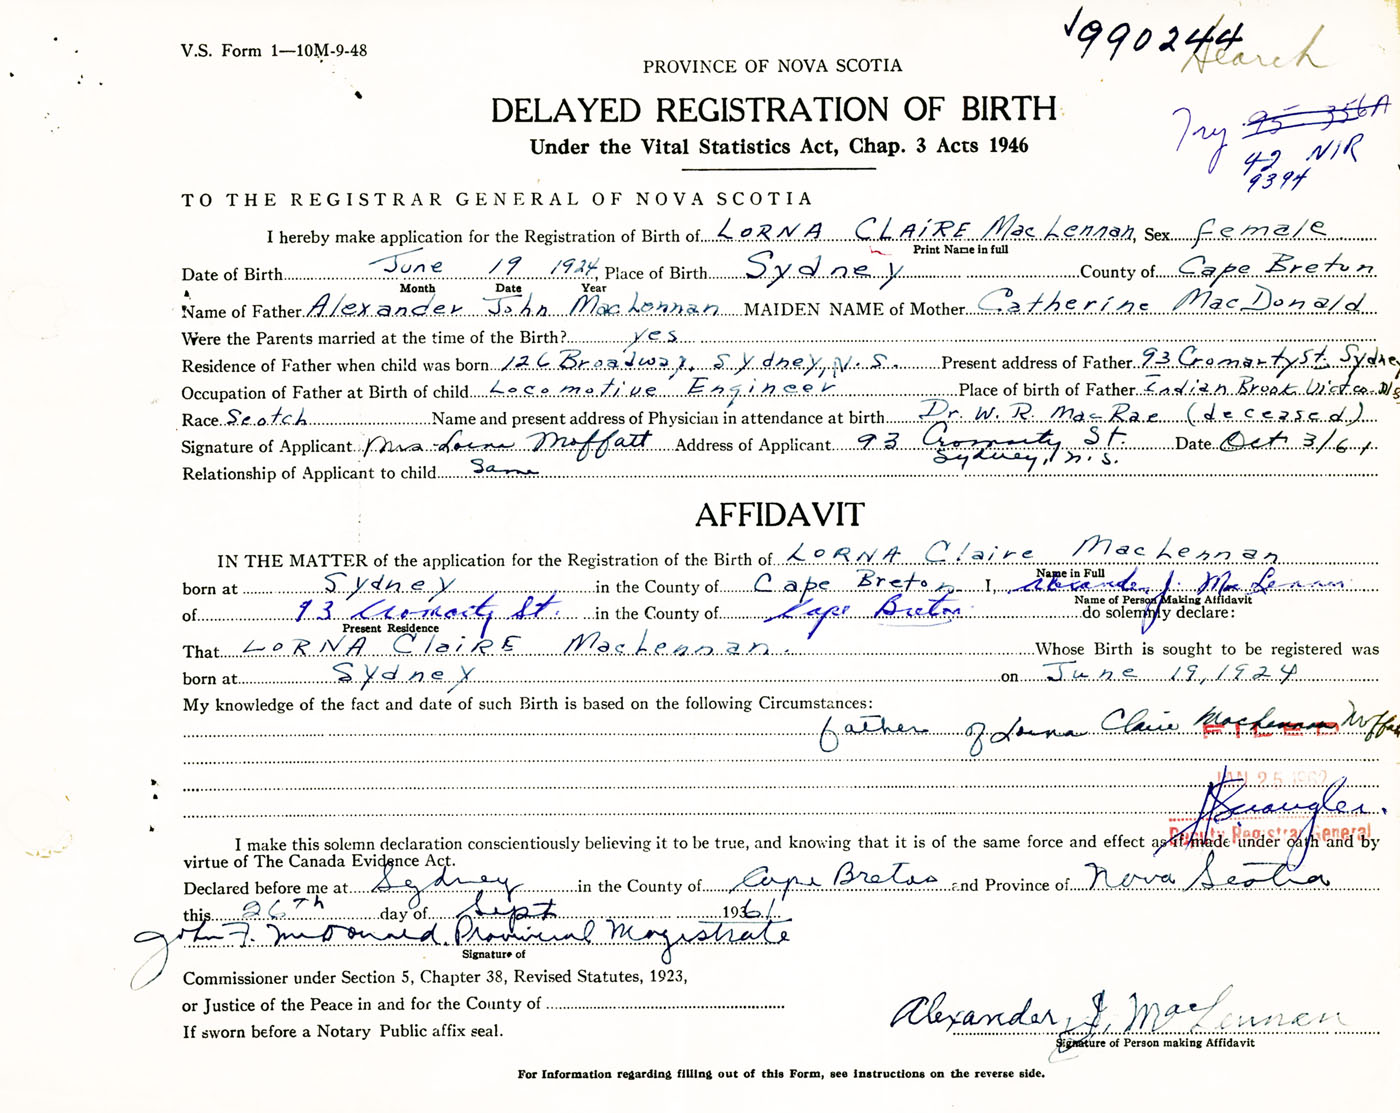 V.S. Form 1—10M-9-48
1990244
Search
PROVINCE OF NOVA SCOTIA
DELAYED REGISTRATION OF BIRTH
Try 95 356A
42 NIR
9394
Under the Vital Statistics Act, Chap. 3 Acts 1946
TO THE REGISTRAR GENERAL OF NOVA SCOTIA
I hereby make application for the Registration of Birth of LORNA CLAIRE MacLennan, Sex female
Print Name in full
Date of Birth June 19 1924, Place of Birth Sydney County of Cape Breton
Month Date Year
Name of Father Alexander John MacLennan MAIDEN NAME of Mother Catherine MacDonald
Were the Parents married at the time of the Birth? yes
Residence of Father when child was born 126 Broadway, Sydney, N.S. Present address of Father 93 Cromarty St. Sydney
Occupation of Father at Birth of child Locomotive Engineer Place of birth of Father Indian Brook Victo. N.S
Race Scotch Name and present address of Physician in attendance at birth Dr. W. R. MacRae (deceased)
Signature of Applicant Mrs Lorna Moffatt Address of Applicant 93 Cromarty St. Date Oct 3/61
Sydney, n.s.
Relationship of Applicant to child Same
AFFIDAVIT
IN THE MATTER of the application for the Registration of the Birth of LORNA Claire MacLennan
Name in Full
born at Sydney in the County of Cape Breton I, Alexander J. MacLennan
Name of Person Making Affidavit
of 93 Cromarty St. in the County of Cape Breton do solemnly declare:
Present Residence
That LORNA ClaiRE MacLennan. Whose Birth is sought to be registered was
born at Sydney on June 19, 1924
My knowledge of the fact and date of such Birth is based on the following Circumstances:
father of Lorna Claire MacLennan Moffatt
FILED
JAN 25 1962
Deputy Registrar General
I make this solemn declaration conscientiously believing it to be true, and knowing that it is of the same force and effect as if made under oath and by
virtue of The Canada Evidence Act.
Declared before me at Sydney in the County of Cape Breton and Province of Nova Scotia
this 26th day of Sept 1961
John F. McDonald Provincial Magistrate
Signature of
Commissioner under Section 5, Chapter 38, Revised Statutes, 1923,
or Justice of the Peace in and for the County of
If sworn before a Notary Public affix seal.
Alexander J. MacLennan
Signature of Person making Affidavit
For Information regarding filling out of this Form, see Instructions on the reverse side.